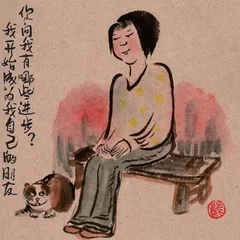 你问我有哪些进步？
我开始成为我自己的朋友